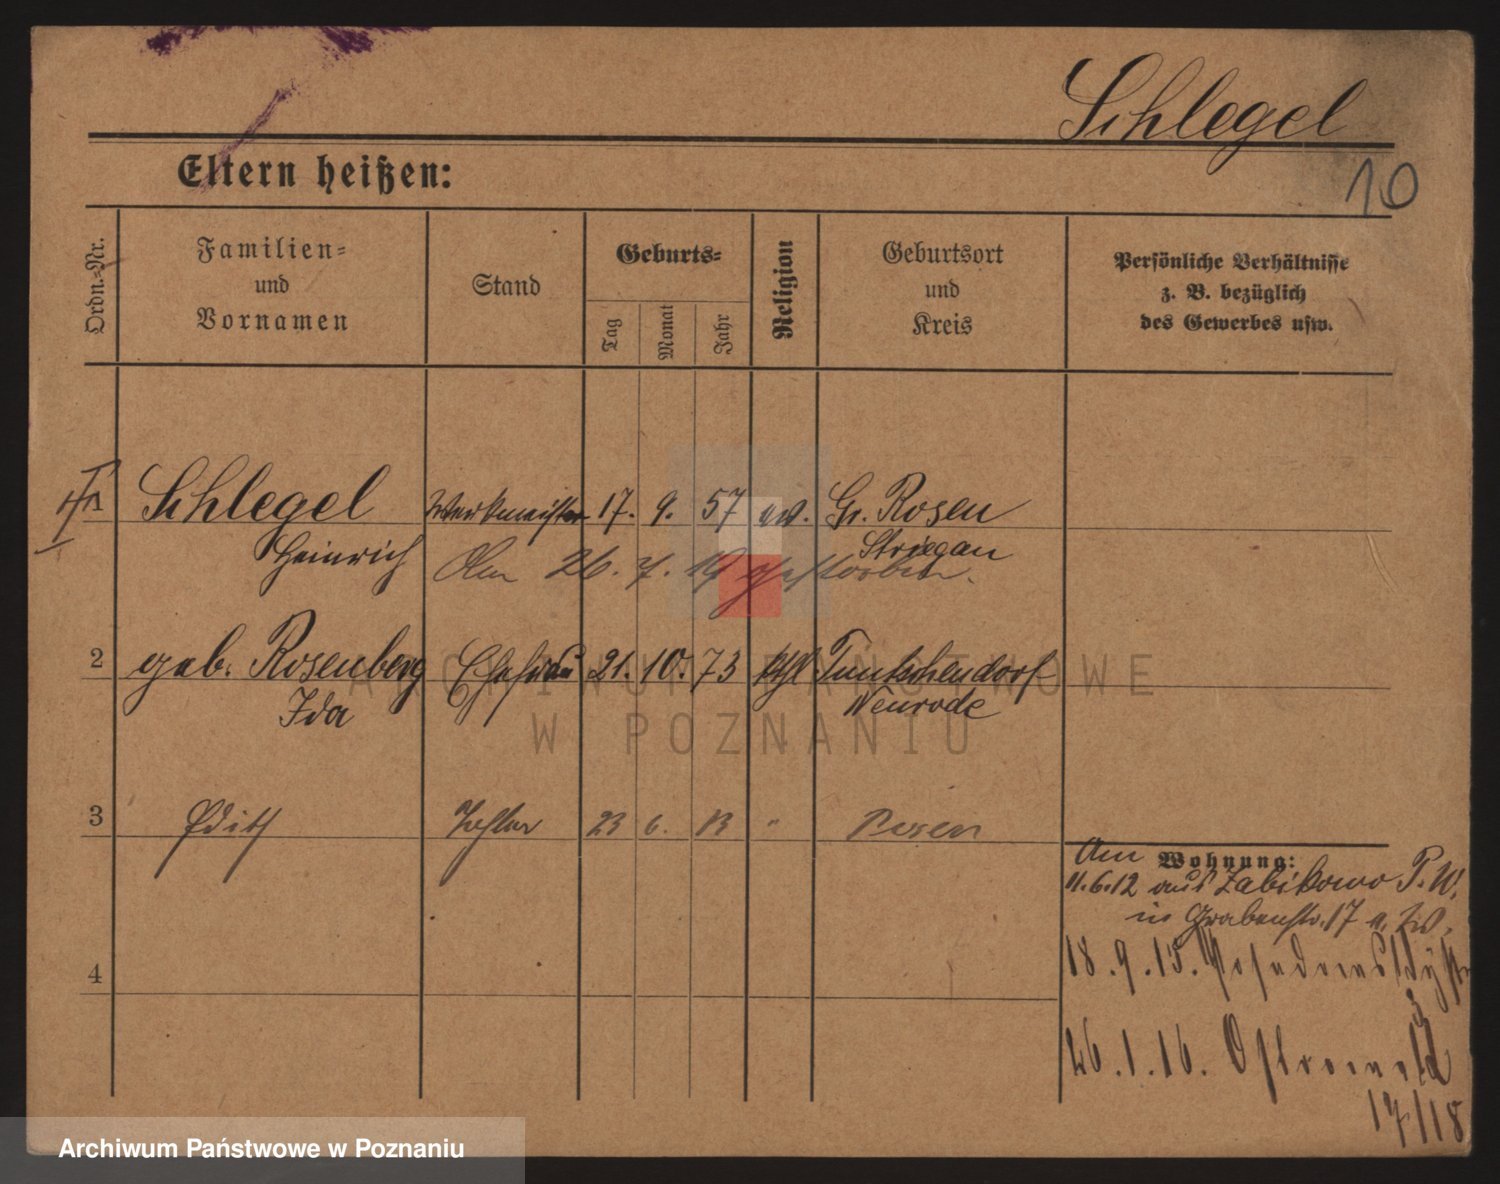 Schlegel
10
Eltern heißen:
Ordn.-Nr.
Familien-
und
Vornamen
Stand
Geburts-
Tag
Monat
Jahr
Religion
Geburtsort
und
Kreis
Persönliche Verhältnisse
z. B. bezüglich
des Gewerbes usw.
1 Schlegel Werkmeister 17. 9. 57 ev. Gr. Rosen
Heinrich Striegau
Am 26. 7. 19 gestorben.
2 geb. Rosenberg Ehefrau 21. 10. 73 kthl Tuntschendorf
Ida Neurode
3 Edith Tochter 23 6. 13 " Posen
4
Wohnung:
Am
11.6.12 aus Zabikowo P. W.
in Grabenstr. 17
18.9.15.
3
26.1.16.
17/18
ARCHIWUM PAŃSTWOWE
W POZNANIU
Archiwum Państwowe w Poznaniu